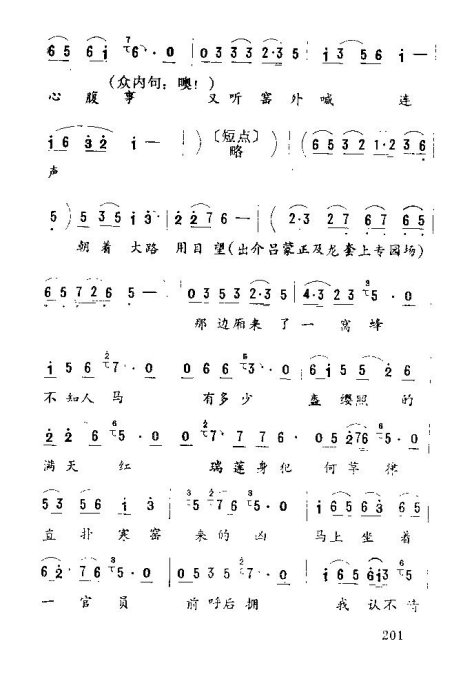 6 5 6 i 7 6· 0 | 0 3 3 3 2·3 5 | i 3 5 6 i — |
(众内句：噢！)
心 腹 事 又 听 窑 外 喊 连
i 6 3 2 i — ) ( 〔短点〕 略 ) ( 6 5 3 5 1·2 3 6 |
声
5 ) 5 3 5 i 3 | 2 2 7 6 — | ( 2·3 2 7 6 7 6 5 |
朝 着 大 路 用 目 望 (出介吕蒙正及龙套上专园场)
6 5 7 2 6 5 — | 0 3 5 3 2·3 5 | 4·3 2 3 5· 0 |
那 边 厢 来 了 一 窝 蜂
i 5 6 2 7· 0 | 0 6 6 6 3· 0 | 6 i 5 5 2 6 |
不 知 人 马 有 多 少 盔 缨 照 的
2 2 6 6 5· 0 | 0 2 7 7 7 6 · 0 5 2 7 6 5 |
满 天 红 瑞 莲 身 犯 何 萃 律
5 3 5 6 i 3 | 0 5 5 3 5· 0 | i 6 5 6 5 |
直 扑 寒 窑 来 的 凶 马 上 坐 着
6 2· 7 6 3 5· 0 | 0 5 3 5 5· 0 | i 6 5 6 i 3 |
一 官 员 前 呼 后 拥 我 认 不
201